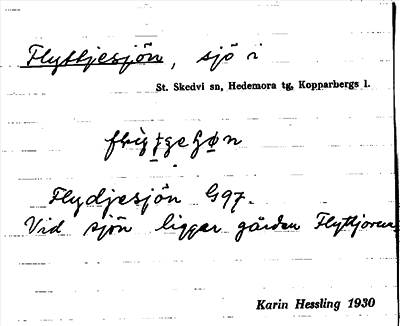 Flyttjesjön, sjö i
St. Skedvi sn, Hedemora tg, Kopparbergs l.
Flydjesjön G97.
Vid sjön ligger gården Flyttjorena
Karin Hessling 1930